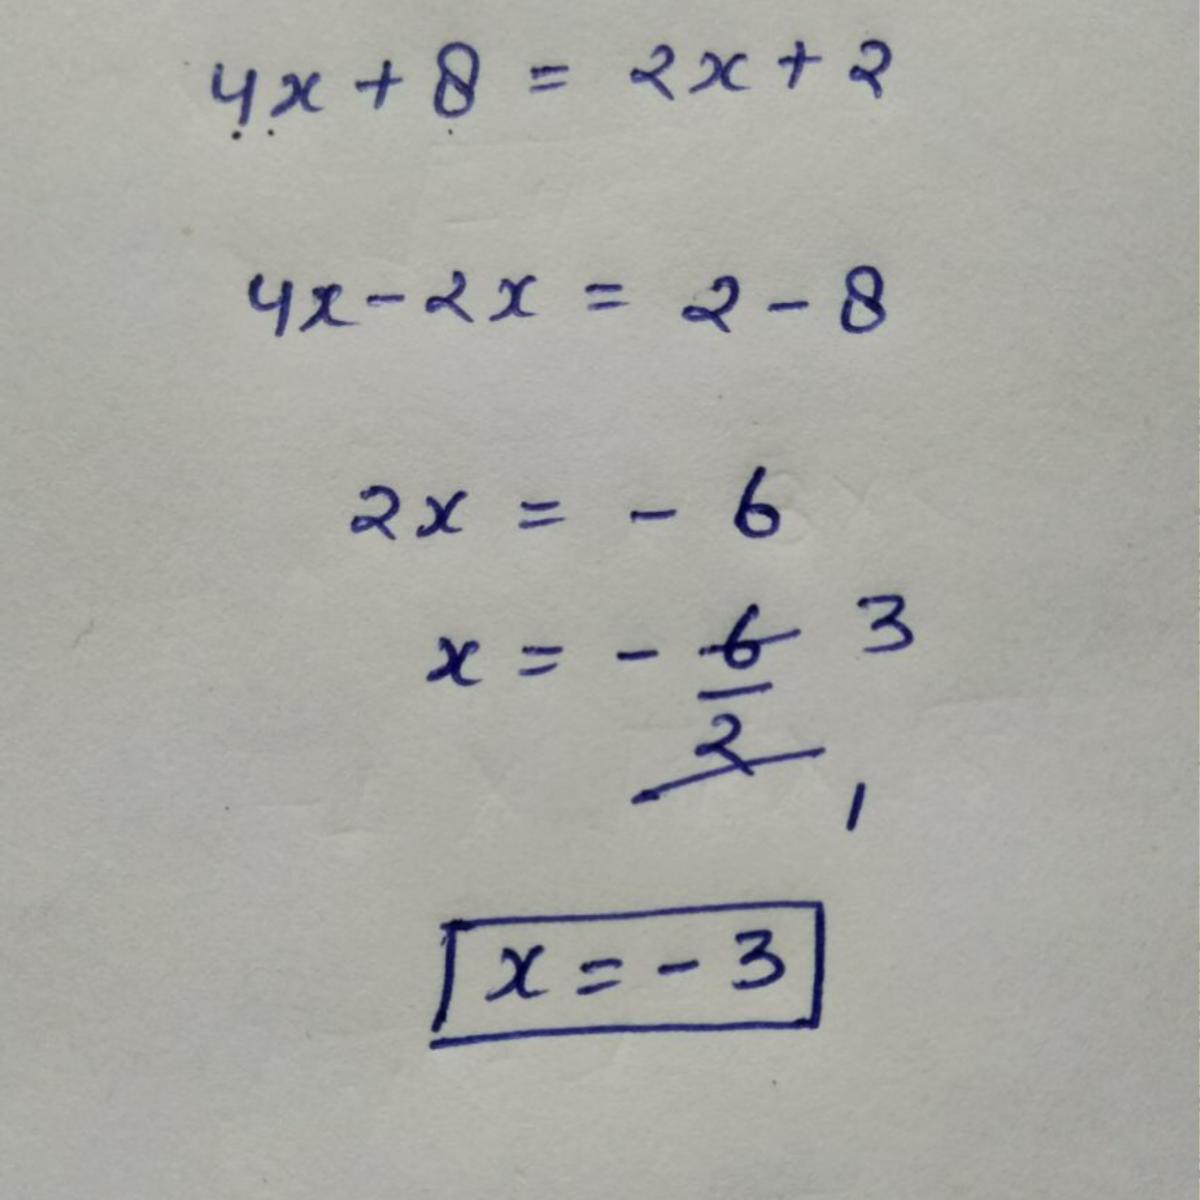 4x + 8 = 2x + 2
4x - 2x = 2 - 8
2x = - 6
x = - 6/2 3 1
x = - 3